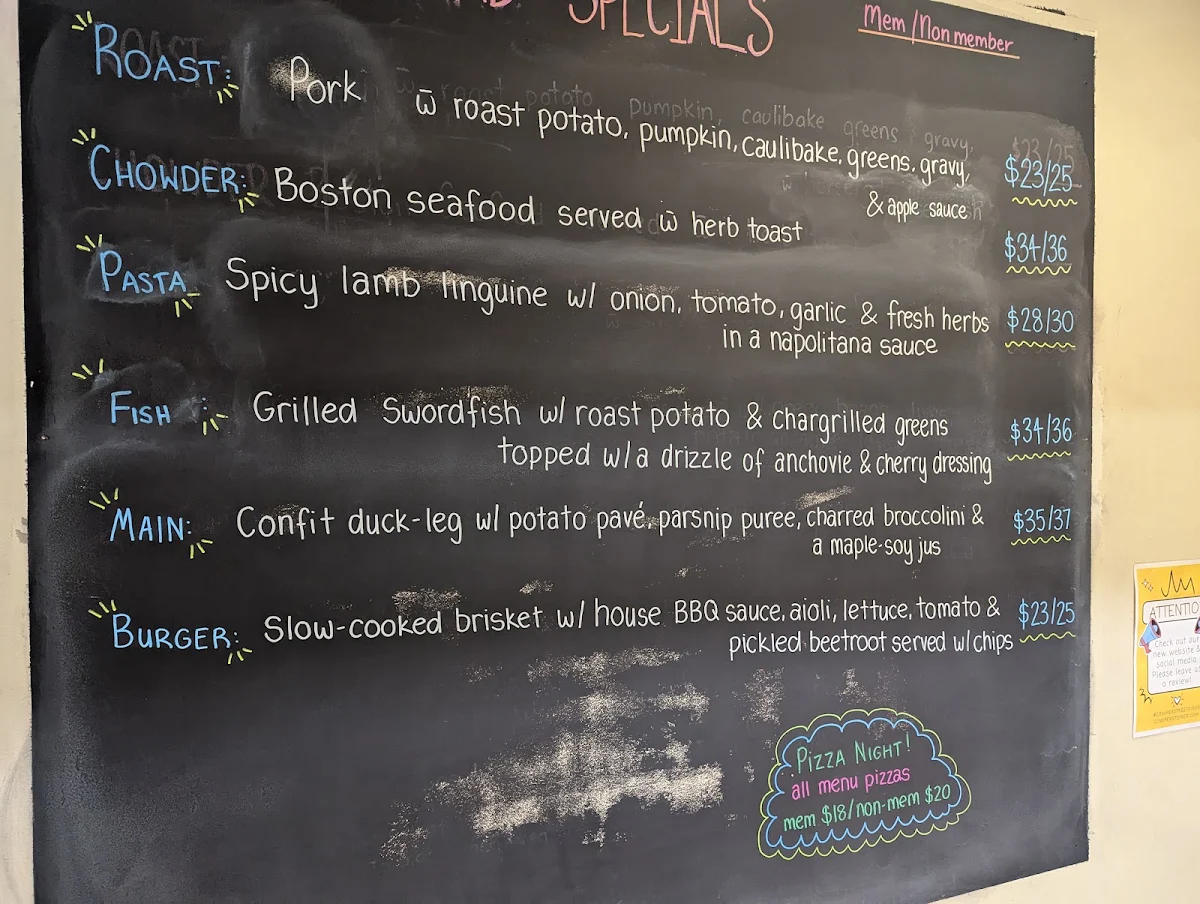 SPECIALS
Mem/Non member
ROAST: Pork w̄ roast potato, pumpkin, caulibake, greens, gravy, $23/25
& apple sauce
CHOWDER: Boston seafood served w̄ herb toast $34/36
PASTA Spicy lamb linguine w/ onion, tomato, garlic & fresh herbs $28/30
in a napolitana sauce
FISH : Grilled Swordfish w/ roast potato & chargrilled greens $34/36
topped w/a drizzle of anchovie & cherry dressing
MAIN: Confit duck-leg w/ potato pavé, parsnip puree, charred broccolini & $35/37
a maple-soy jus
BURGER: Slow-cooked brisket w/ house BBQ sauce, aioli, lettuce, tomato & $23/25
pickled beetroot served w/ chips
PIZZA NIGHT!
all menu pizzas
mem $18/non-mem $20
ATTENTIO
Check out our
new website &
social media
Please leave us
a review!